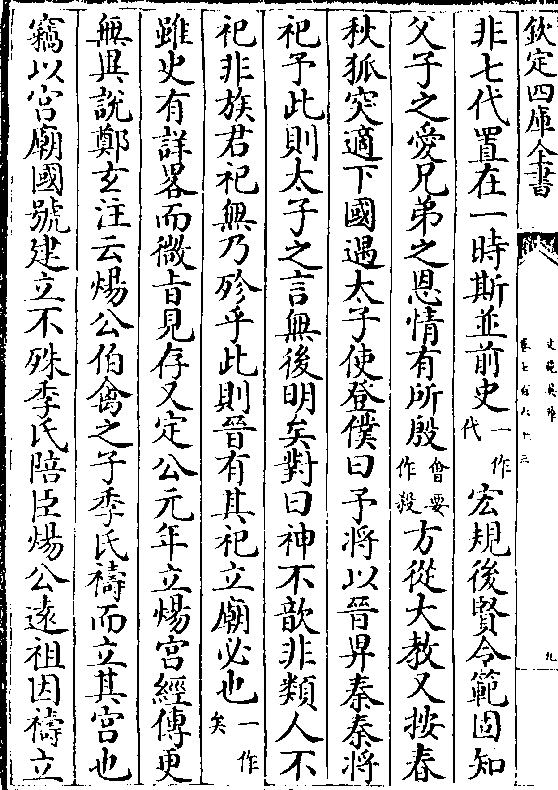 欽定四庫全書
文苑英華
卷七百六十三
九
非七代置在一時斯並前史一作代宏規後賢令範固知
父子之愛兄弟之恩情有所殷會要作殺方從大教又按春
秋狐突適下國遇太子使登僕曰予將以晉畀秦秦將
祀予此則太子之言無後明矣對曰神不歆非類人不
祀非族君祀無乃殄乎此則晉有其祀立廟必也一作矣
雖史有詳畧而微旨見存又定公元年立煬宮經傳更
無異說鄭玄注云煬公伯禽之子季氏禱而立其宮也
竊以宮廟國號建立不殊季氏陪臣煬公遠祖因禱立